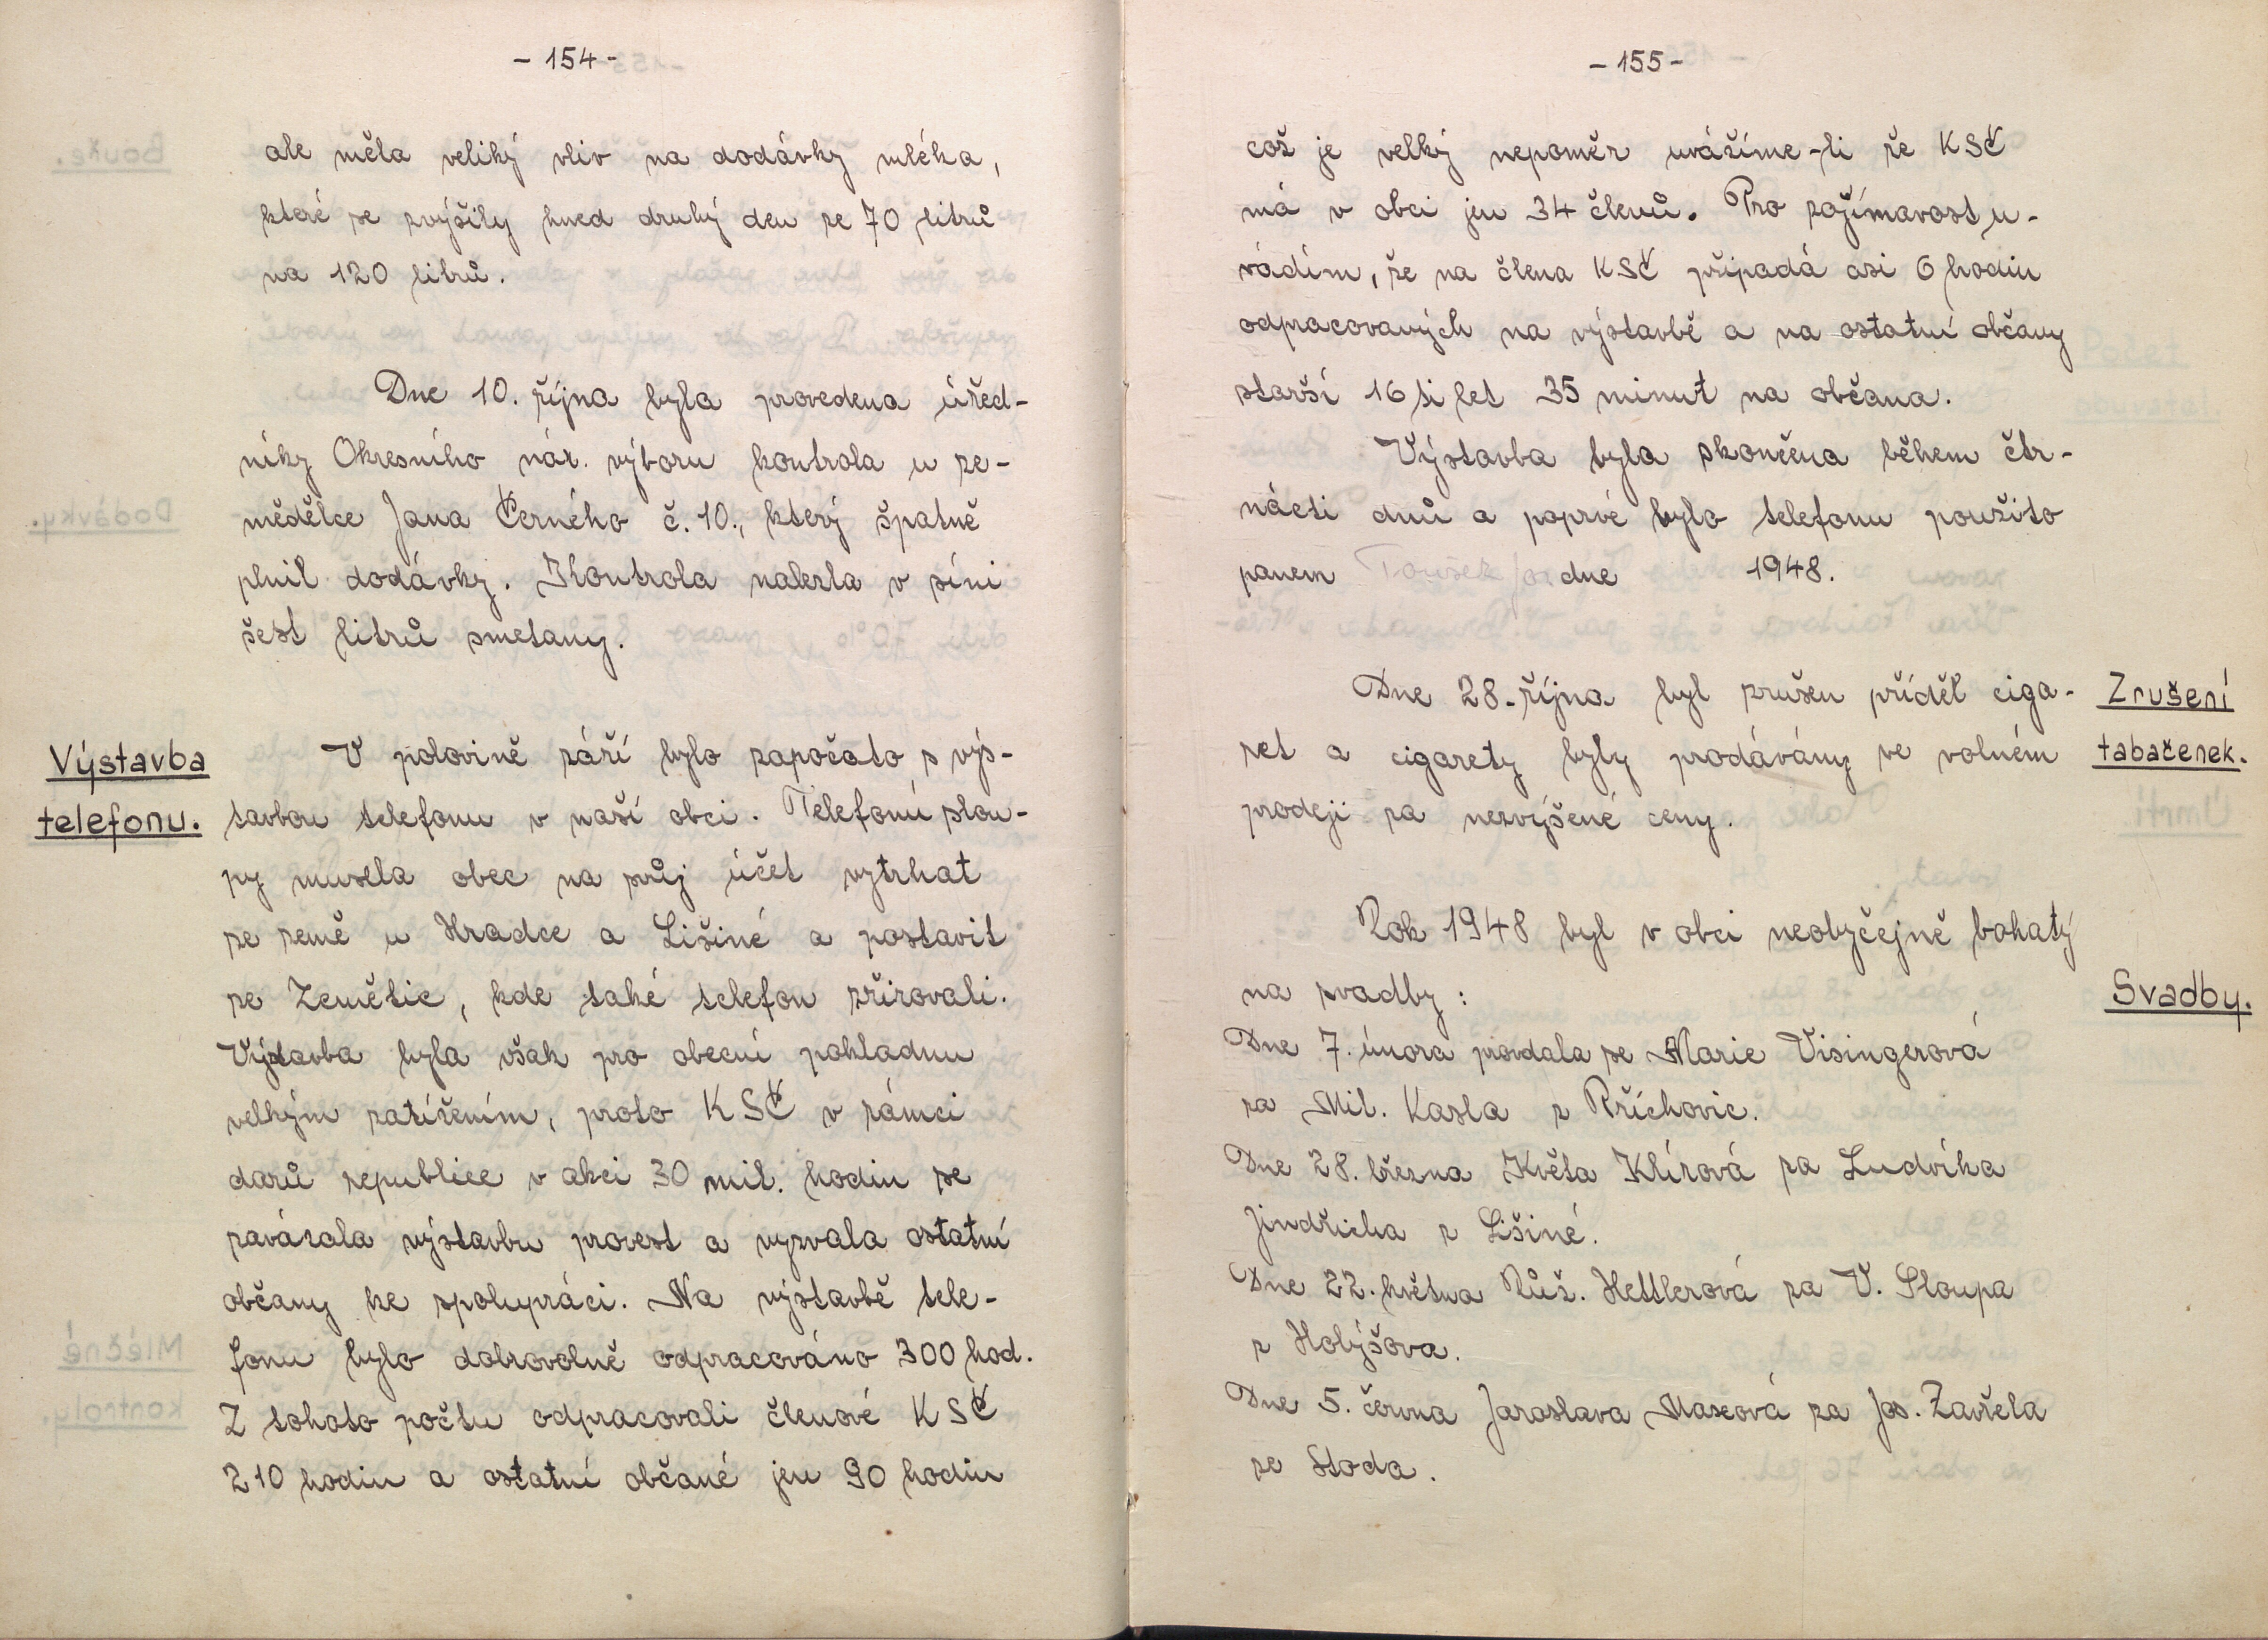 - 154 -
ale měla veliký vliv na dodávky mléka,
které se zvýšily hned druhý den ze 70 litrů
na 120 litrů.
Dne 10. října byla provedena úřed-
níky Okresního nár. výboru kontrola u ze-
mědělce Jana Černého č. 10., který špatně
plnil dodávky. Kontrola nalezla v síni
šest litrů smetany.
Výstavba
telefonu.
V polovině září bylo započato s výs-
tavbou telefonu v naší obci. Telefoní slou-
py musela obec na svůj účet vytrhat
ze země u Hradce a Lišiné a postavit
ze Zemětic, kde také telefon zřizovali.
Výstavba byla však pro obecní pokladnu
velkým zatížením, proto KSČ v rámci
darů republice v akci 30 mil. hodin se
zavázala výstavbu provest a vyzvala ostatní
občany ke spolupráci. Na výstavbě tele-
fonu bylo dobrovolně odpracováno 300 hod.
Z tohoto počtu odpracovali členové KSČ
210 hodin a ostatní občané jen 90 hodin
- 155 -
což je velký nepoměr uvážíme-li že KSČ
má v obci jen 34 členů. Pro zajímavost u-
vádím, že na člena KSČ připadá asi 6 hodin
odpracovaných na výstavbě a na ostatní občany
starší 16 ti let 35 minut na občana.
Výstavba byla skončena během čtr-
nácti dnů a poprvé bylo telefonu použito
panem Toušek Jos dne 1948.
Dne 28. října byl zrušen příděl ciga-
ret a cigarety byly prodávány ve volném
prodeji za nezvýšené ceny.
Zrušení
tabačenek.
Rok 1948 byl v obci neobyčejně bohatý
na svadby:
Svadby.
Dne 7. února provdala se Marie Visingerová
za Mil. Kasla z Příchovic.
Dne 28. března Květa Klírová za Ludvíka
Jindřicha z Lišiné.
Dne 22. května Růž. Hettlerová za V. Sloupa
z Holýšova.
Dne 5. června Jaroslava Maxová za Jos. Zavřela
ze Stoda.